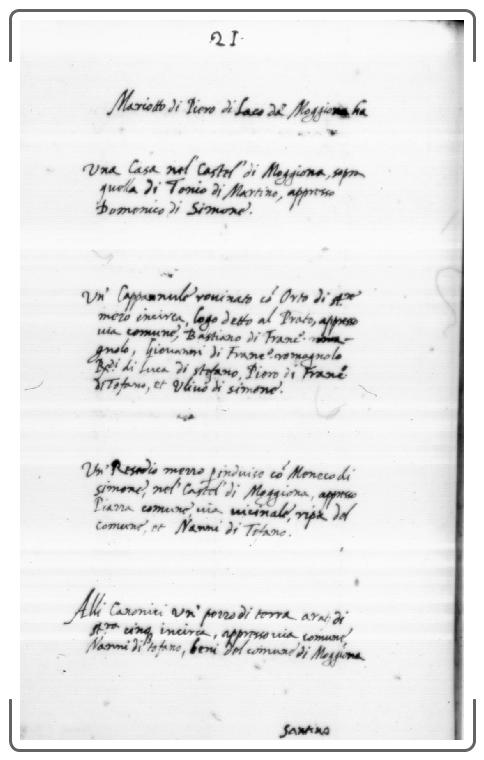 21.
Mariotto di Piero di Laco da Moggiona ha
Una Casa nel Castel di Moggiona, sopra
quella di Tonio di Martino, appresso
Domenico di Simone.
Un' Cappannule rovinato cō Orto di st.re
mezo incirca, logo detto al Prato, appresso
via comune, Bastiano di Franc.º roma-
gnolo, Giovanni di Franc.º romagnolo
di Luca di stefano, Piero di Franc.º
di Tofano, et Ulivo di simone.
Un' Resedio mezzo pinduiso cō Meneco di
simone, nel Castel di Moggiona, appresso
Piazza comune, via vicinale, ripa del
comune, et Nanni di Tofano.
Alli Canonici Un' pezzo di terra arat. di
st.ra cinq incirca, appresso via comune
Nanni di tofano, beni del comune di Moggiona
Santino